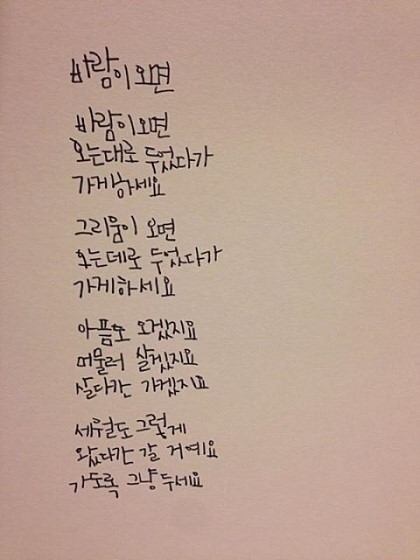 바람이 오면
바람이 오면
오는대로 두었다가
가게하세요
그리움이 오면
오는데로 두었다가
가게하세요
아픔도 오겠지요
머물러 살겠지요
살다간 가겠지요
세월도 그렇게
왔다간 갈 거예요
가도록 그냥 두세요